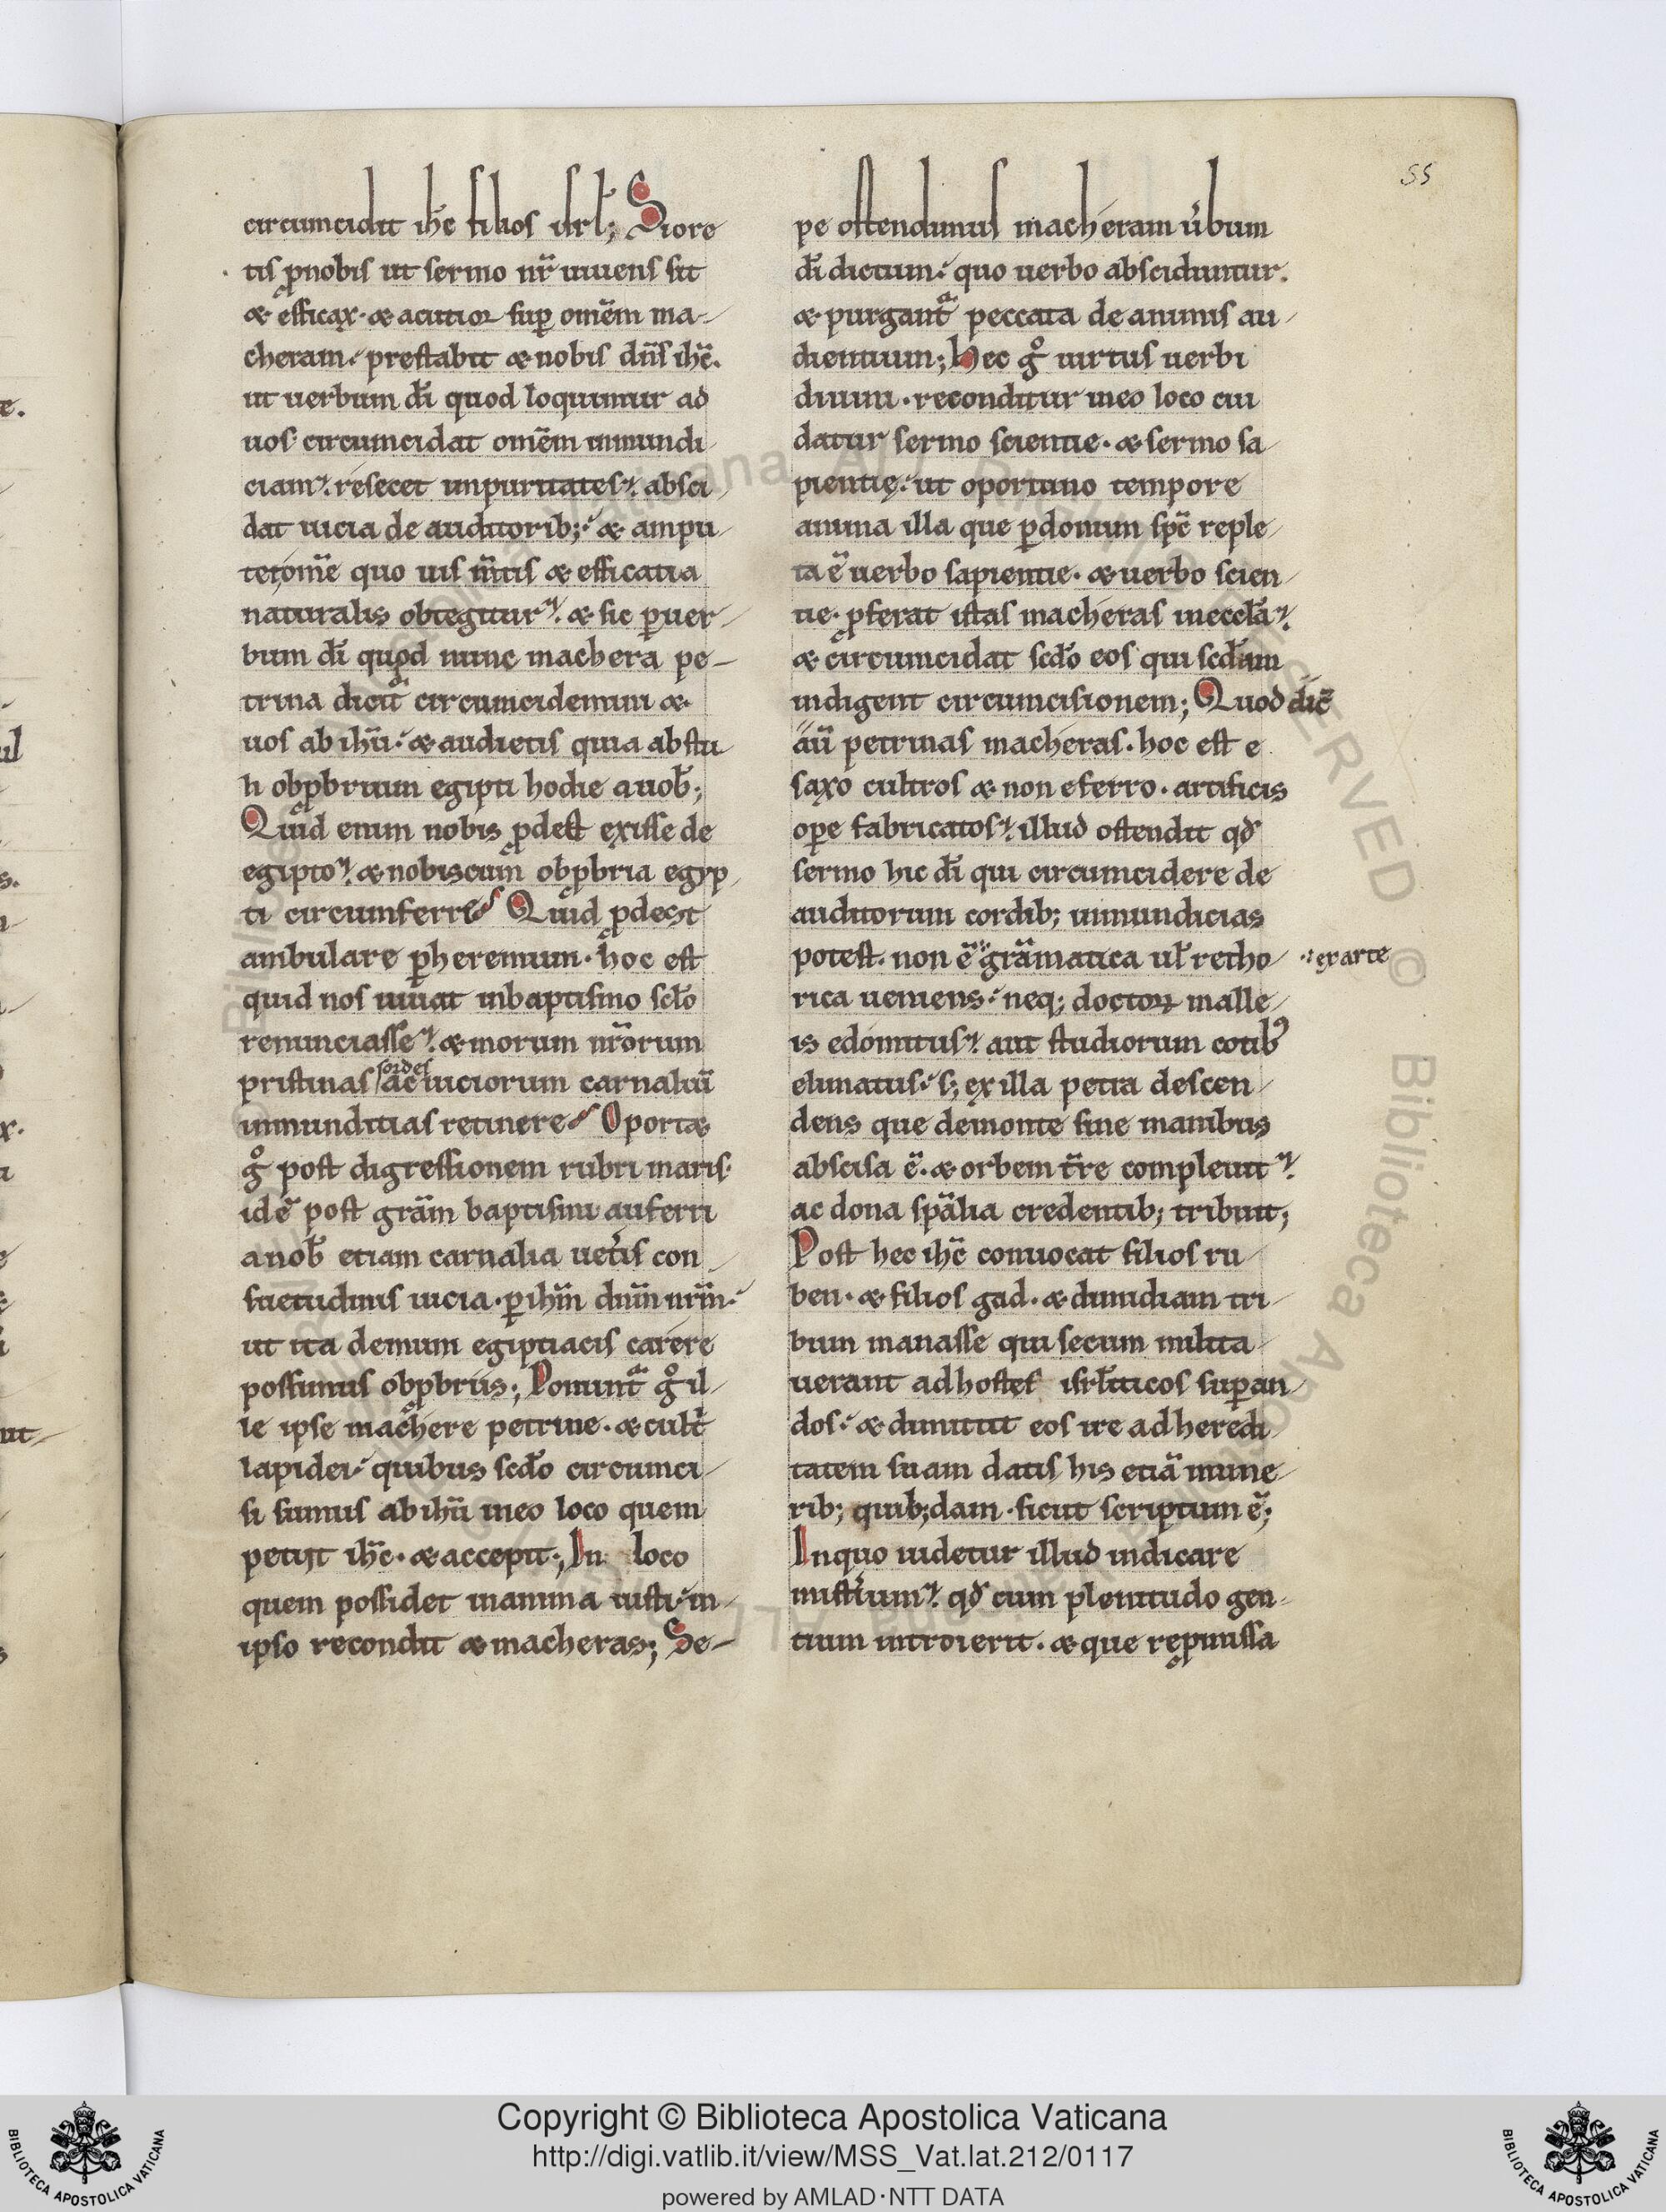 55
circumcidit ihc̄ filios isrl̄; Si ore
tis p nobis ut sermo nr̄ uiuens sit
& efficax. & acutior sup om̄em ma-
cheram. prestabit & nobis dn̄s ihc̄.
ut uerbum dī quod loquimur ad
uos circumcidat om̄em inmundi
ciam. resecet inpuritates. absci
dat uicia de auditorib; & ampu
tet om̄e quo uis m̄tis & efficatia
naturalis obtegitur. & sic p uer
bum dī quod nunc machera pe-
trina dicit᷑ circumcidemini &
uos ab ihū. & audietis quia abstu
li obpbrium egipti hodie a uob̄;
Quid enim nobis pdest exisse de
egipto. & nobiscum obpbria egyp
ti circumferre Quid pdest
ambulare p heremum. hoc est
quid nos iuuat in baptismo sclo̅
renunciasse. & morum nr̄orum
pristinas sordes ac uiciorum carnaliū
inmunditias retinere Oport&
gͦ post digressionem rubri maris
id ē post grām baptismi auferri
a nob̄ etiam carnalia uet̄is con
suetudinis uicia. p ihm̄ dnm̄ nrm̄.
ut ita demum egiptiacis carere
possimus obpbriis; Ponunt᷑ gͦ il
le ipse machere petrine. & cult̄
lapidei. quibus scdo̅ circumci
si sumus ab ihū in eo loco quem
petiit ihc̄. & accepit; In loco
quem possidet in anima iusti. in
ipso recondit & macheras; Se-
pe ostendimus macheram ūbum
dī dictum. quo uerbo absciduntur.
& purgant᷑ peccata de animis au
dientium; Hec gͦ uirtus uerbi
diuini. reconditur in eo loco cui
datur sermo scientie. & sermo sa
pientię. ut oportuno tempore
anima illa que p donum spc̄ reple
ta ē uerbo sapientie. & uerbo scien
tie. pferat istas macheras in eccla̅.
& circumcidat scdo̅ eos qui scda̅m
indigent circumcisionem; Quod dic̄
aū petrinas macheras. hoc est e
saxo cultros & non e ferro. artificis
ope fabricatos. illud ostendit qd̄
sermo hic dī qui circumcidere de
auditorum cordib; inmundicias
potest. non ē grāmatica ul̄ retho
∴ ex arte
rica ueniens. neq; doctoꝝ malle
is edomitus. aut studiorum cotib᷒
elimatus. s; ex illa petra descen
dens que de monte sine manibus
abscisa ē. & orbem t̄re compleuit.
ac dona spālia credentib; tribuit;
Post hec ihc̄ conuocat filios ru
ben. & filios gad. & dimidiam tri
bum manasse qui secum milita
uerant ad hostes isrl̄iticos supan
dos. & dimittit eos ire ad heredi
tatem suam datis his etiā mune
rib; quib;dam. sicut scriptum ē;
In quo uidetur illud indicare
mist̄ium. qd̄ cum plenitudo gen
tium introierit. & que repmissa
Copyright © Biblioteca Apostolica Vaticana
http://digi.vatlib.it/view/MSS_Vat.lat.212/0117
powered by AMLAD·NTT DATA
BIBLIOTECA APOSTOLICA VATICANA
BIBLIOTECA APOSTOLICA VATICANA